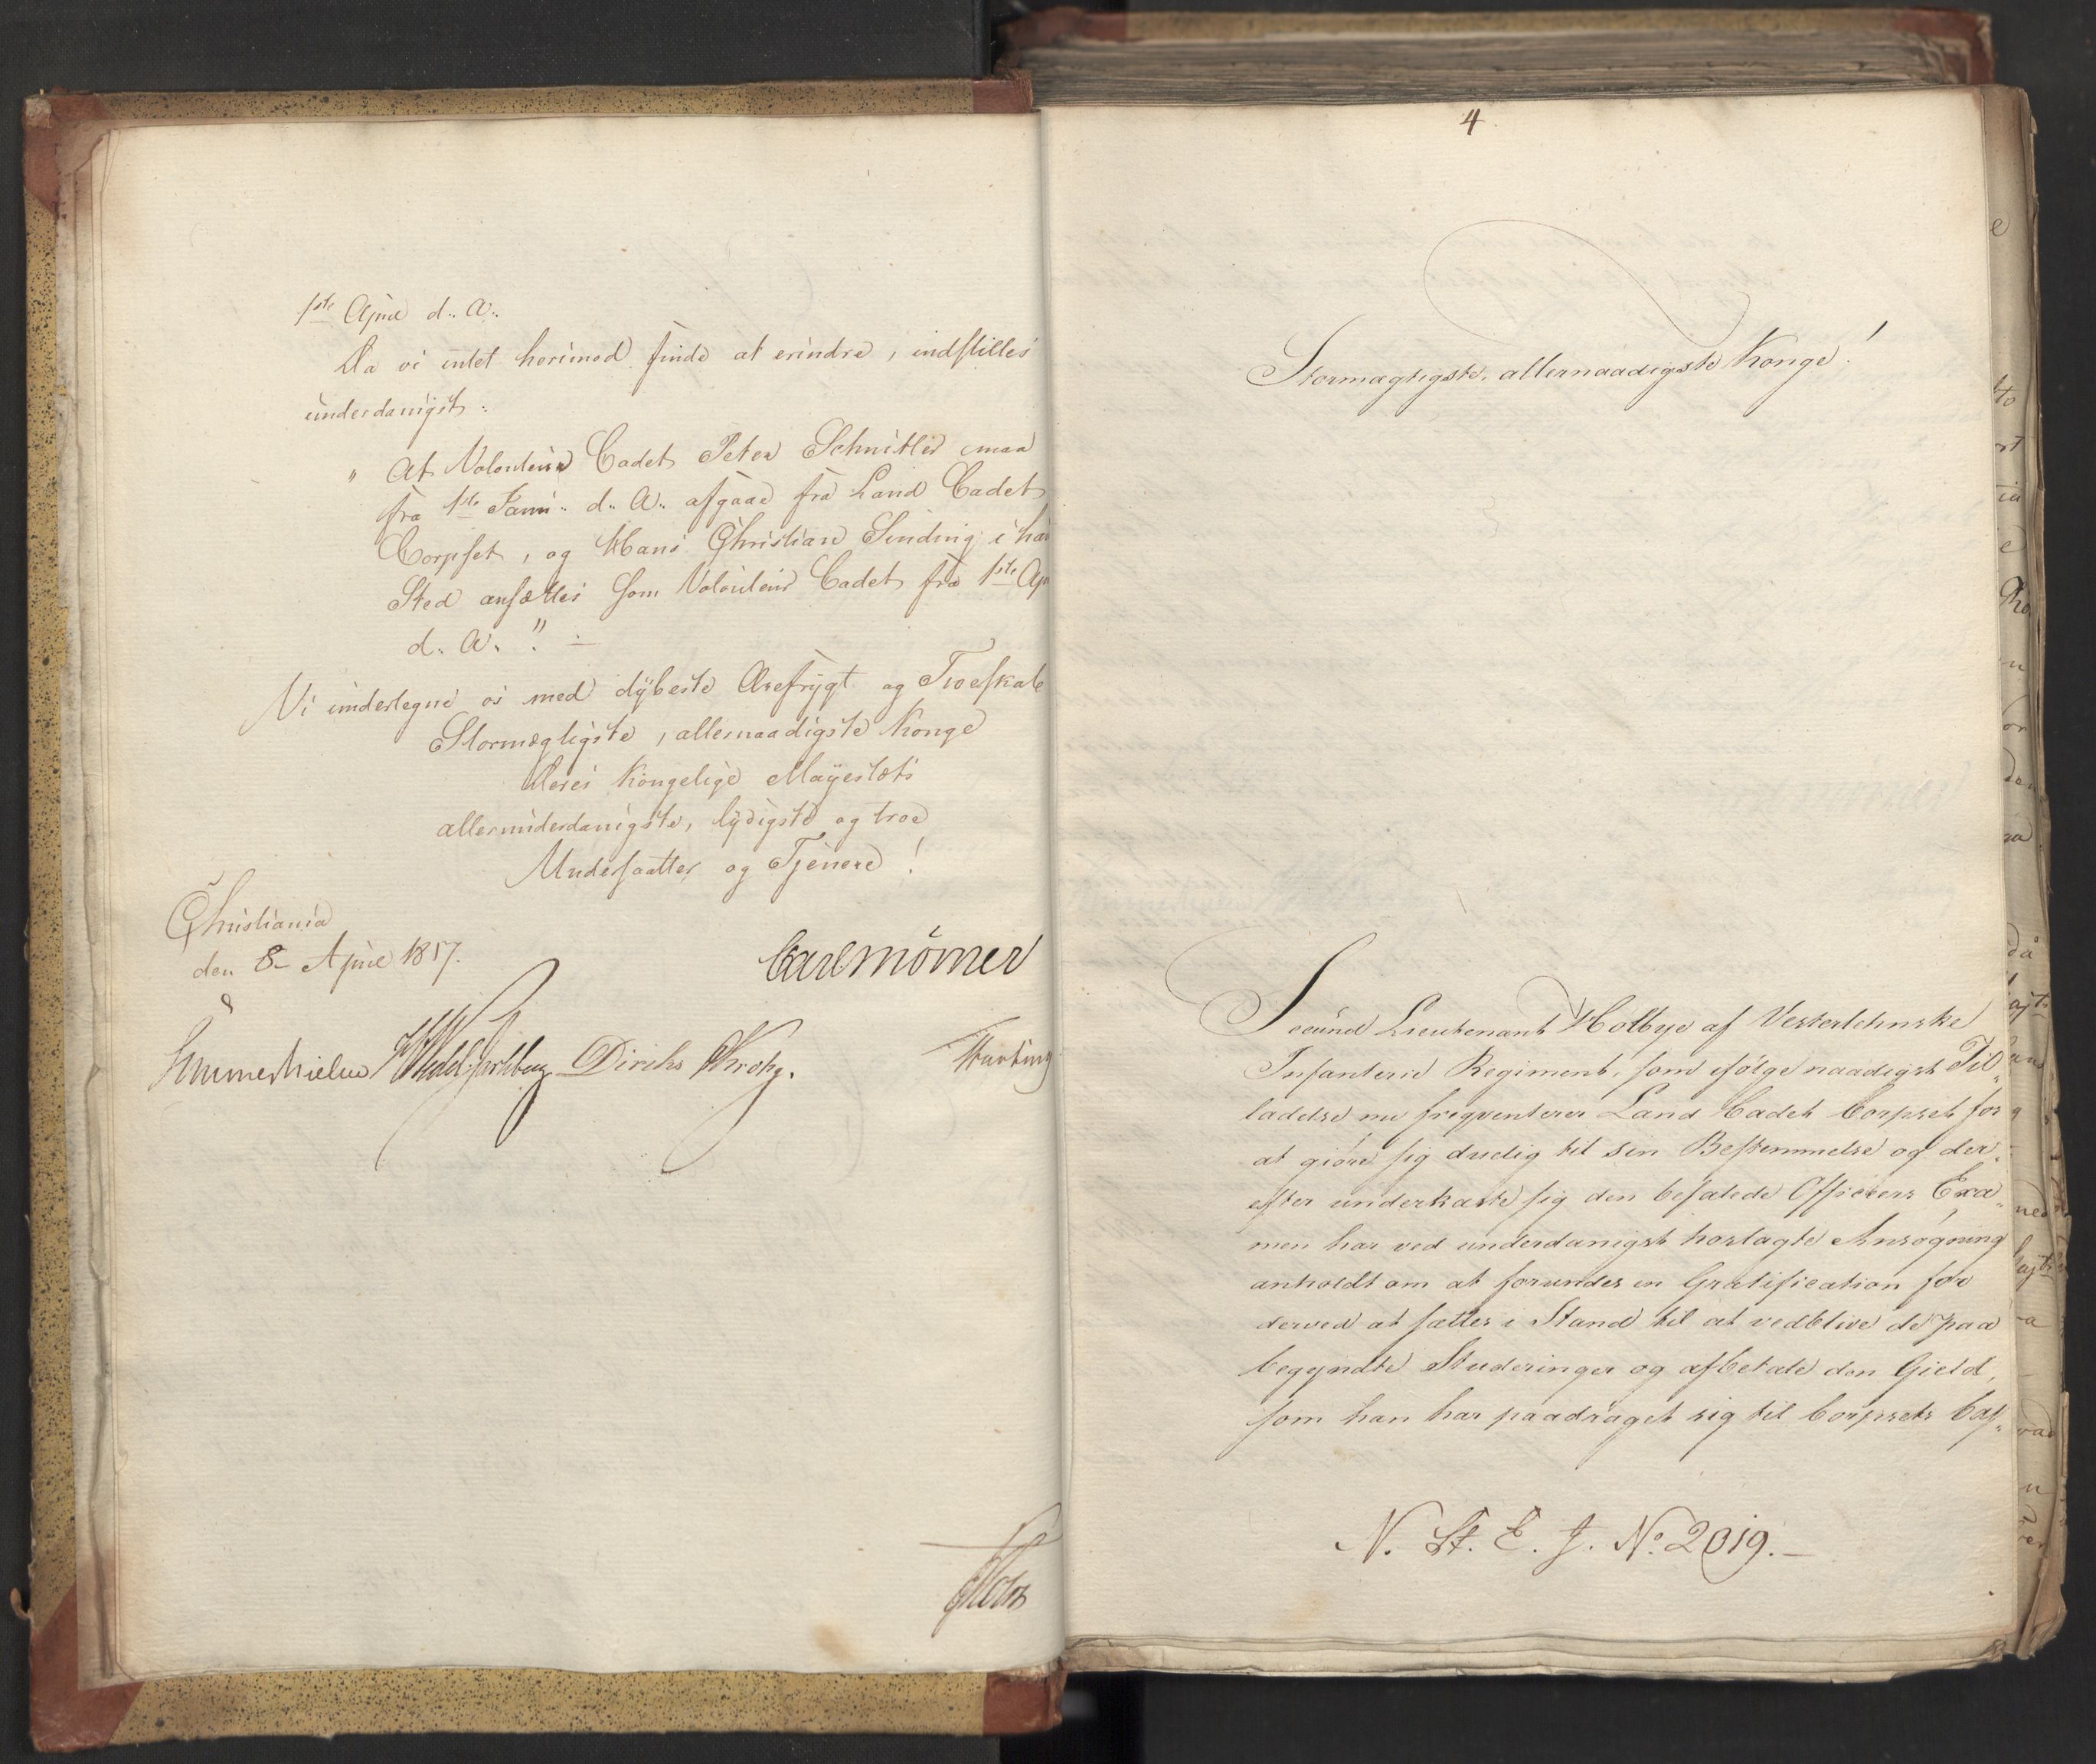 1ste April d: A:
Da vi intet herimod finde at erindre, indstilles
underdanigst:
" At Volonteur Cadet Peter Schnitler maa
fra 1ste Janu: d: A: afgaae fra Land Cadet
Corpset, og Hans Christian Sinding i hans
Sted ansættes som Volonteur Cadet fra 1ste Ap
d: A: "
Vi undertegne os med dybeste Ærefrygt og Troeskab
Stormægtigste, allernaadigste Konge
Deres Kongelige Mayestæts
allerunderdanigste, lydigste og troe
Undersaatter og Tjenere!
Christiania
den 8- April 1817.
Carl Mörner
Sommerhielm Wedel Jarlsberg Diriks Krohg.
Hartung
Holst
4.
Stormægtigste, allernaadigste Konge!
Secund Lieutenant Holbye af Vesterlehnske
Infanterie Regiment, som ifølge naadigst Til„
ladelse nu frequenterer Land Cadet Corpset for
at giøre sig duelig til sin Bestemmelse og der„
efter underkaste sig den befalede Officiers Exa„
men har ved underdanigst hoslagte Ansøgning
anholdt om at forundes en Gratification for
derved at sættes i Stand til at vedblive de paa
begyndte Studeringer og afbetale den Gield,
som han har paadraget sig til Corpsets Cas„
N. St. E. J. No. 2019.-